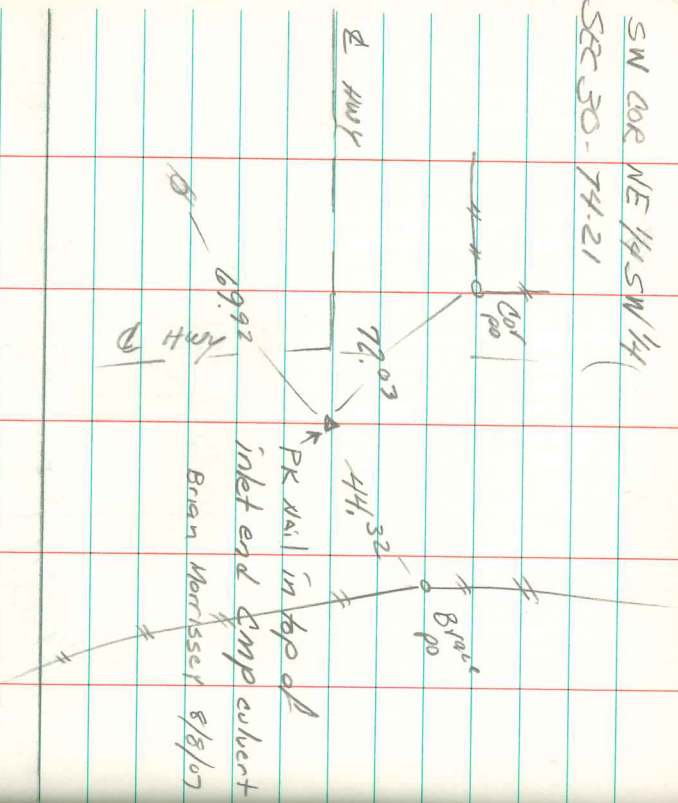 SW COR NE 1/4 SW 1/4
SEC 30-74-21
Cor
po
℄ HWY
72.03
69.92
℄ HWY
44.32
Brace
po
PK Nail in top of
inlet end CMP culvert
Brian Morrisser 8/8/07